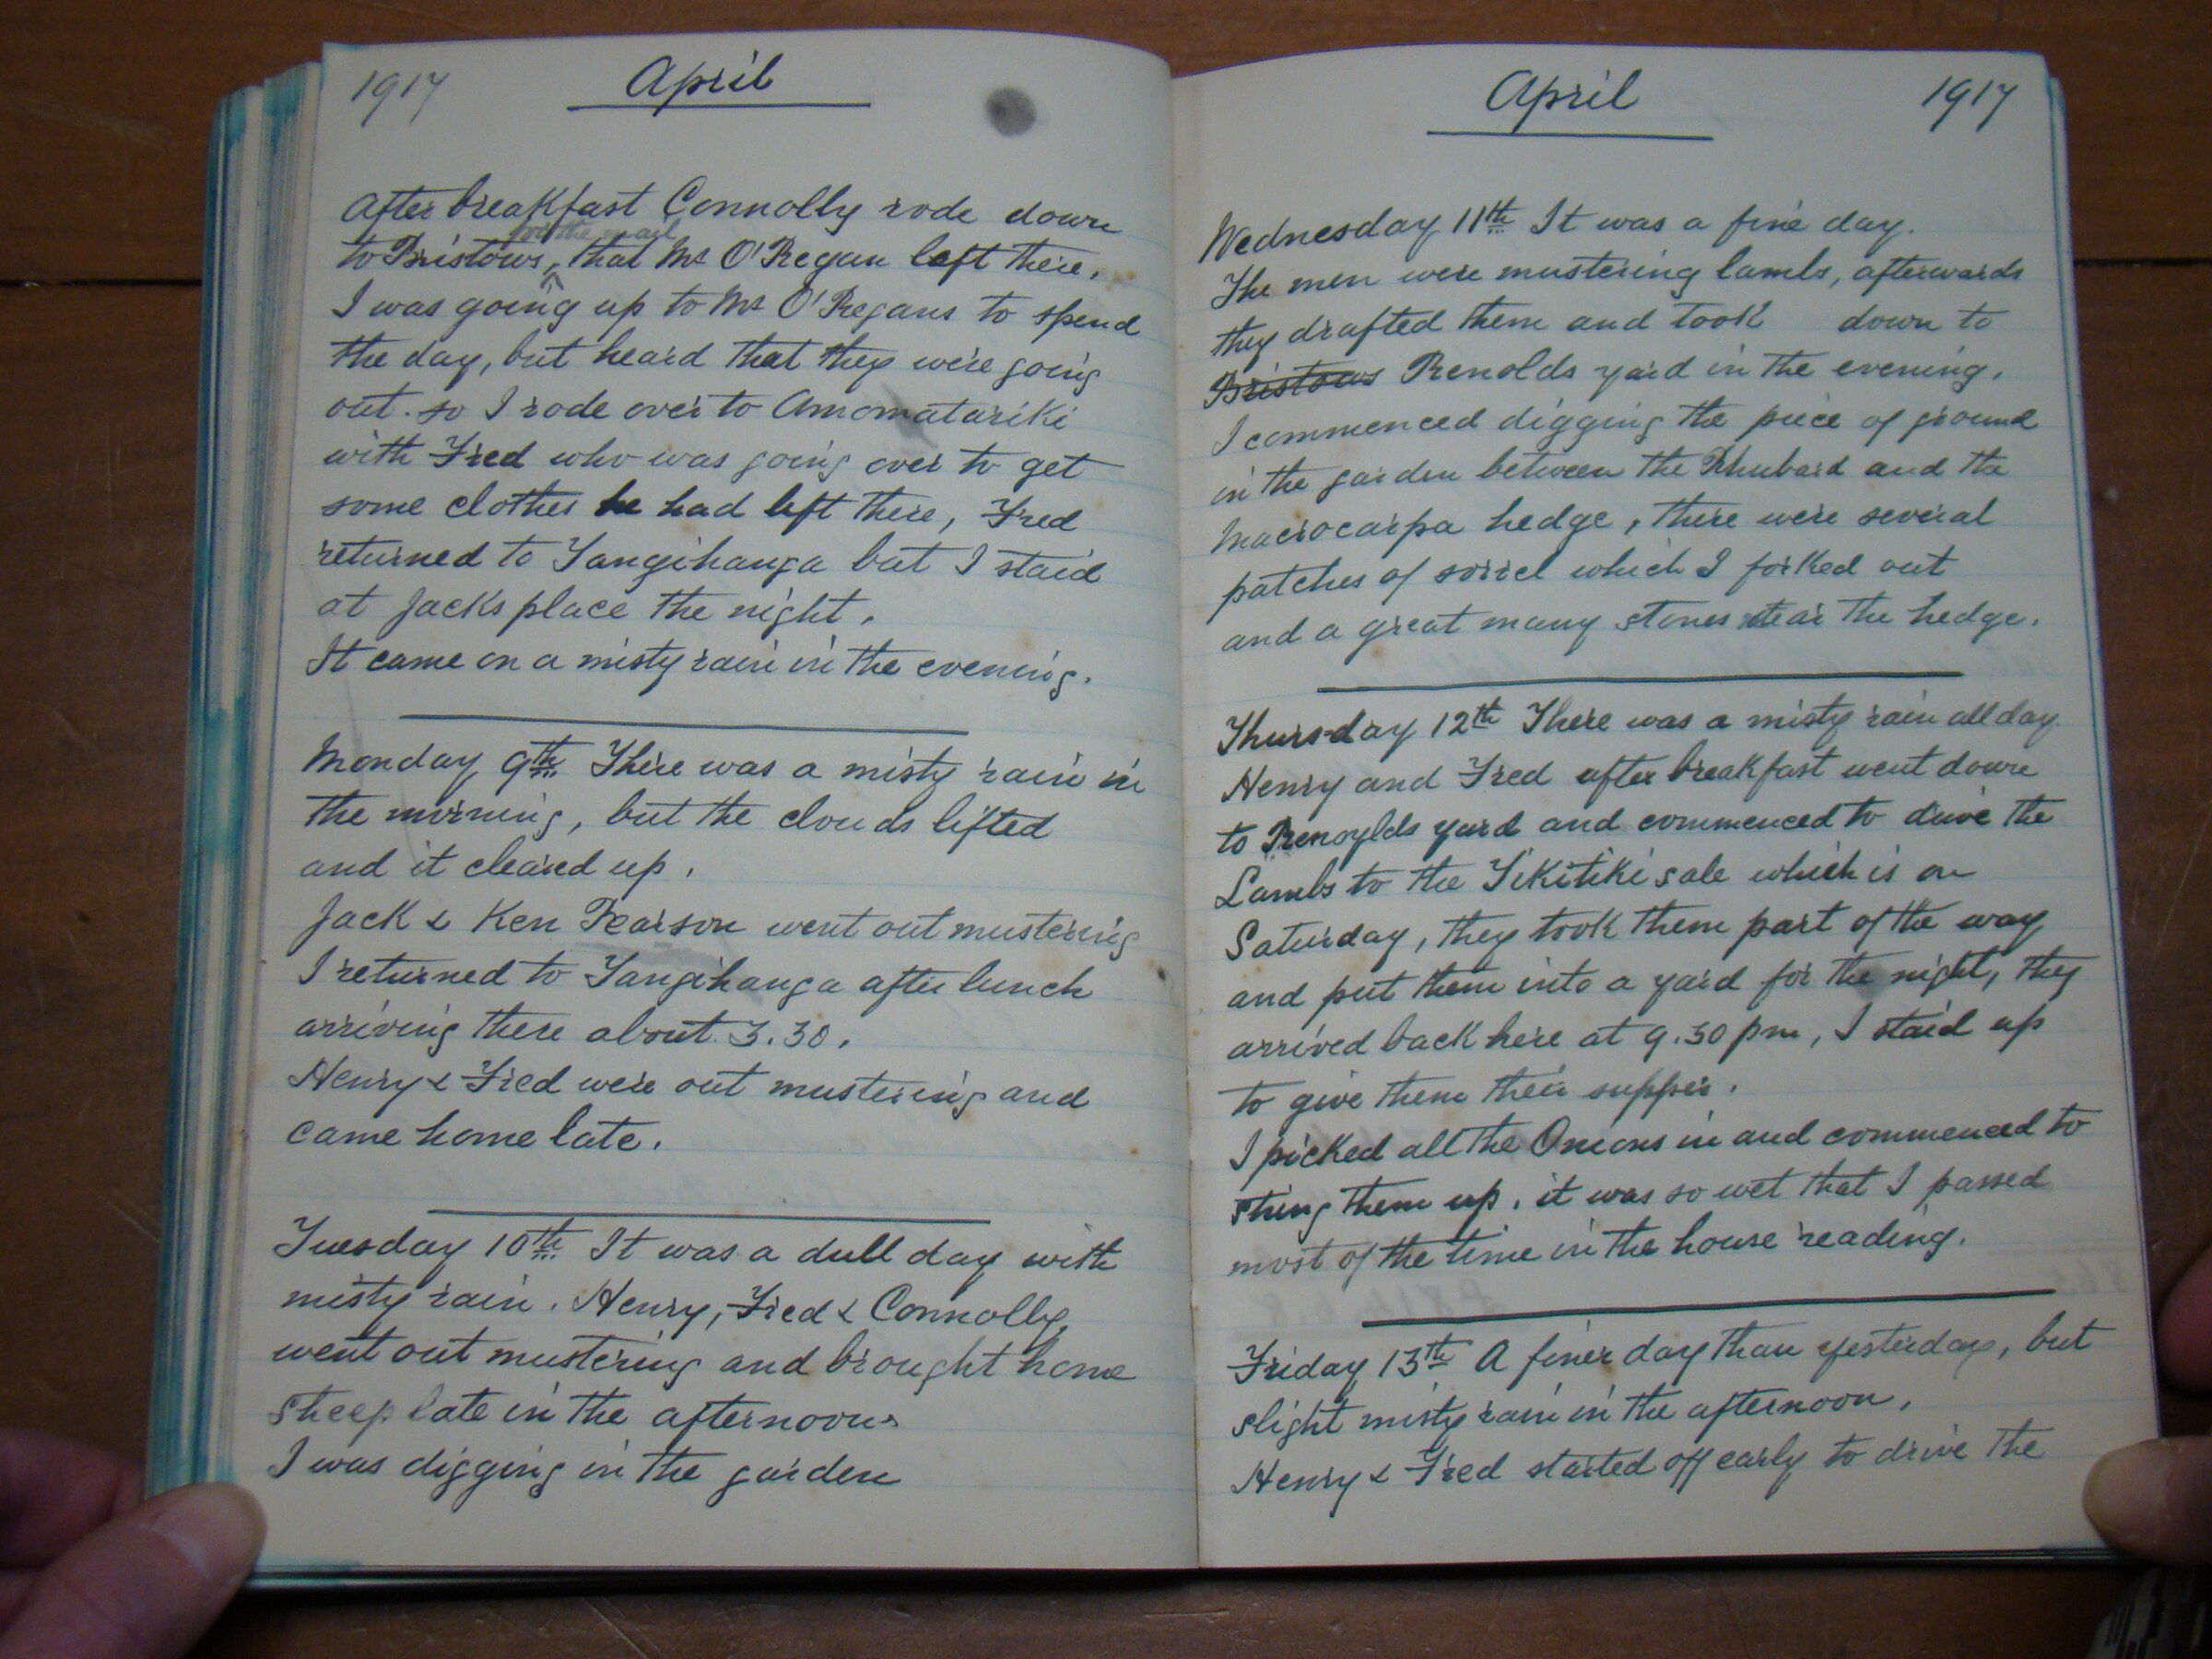 1917 April
After breakfast Connolly rode down
for the mail
to Bristows, that Mr O'Regan left there.
I was going up to Mr O'Regans to spend
the day, but heard that they were going
out. so I rode over to Amomatariki
with Fred who was going over to get
some clothes he had left there, Fred
returned to Tangihanga but I staid
at Jacks place the night.
It came on a misty rain in the evening.
Monday 9th There was a misty rain in
the morning, but the clouds lifted
and it cleared up.
Jack & Ken Pearson went out mustering
I returned to Tangihanga after lunch
arriving there about 3.30.
Henry & Fred were out mustering and
came home late.
Tuesday 10th It was a dull day with
misty rain. Henry, Fred & Connolly
went out mustering and brought home
sheep late in the afternoon.
I was digging in the garden
April 1917
Wednesday 11th It was a fine day.
The men were mustering lambs, afterwards
they drafted them and took down to
Bristows Renolds yard in the evening.
I commenced digging the piece of ground
in the garden between the Rhubard and the
Macrocarpa hedge, there were several
patches of sorrel which I forked out
and a great many stones near the hedge.
Thursday 12th There was a misty rain all day.
Henry and Fred after breakfast went down
to Renoylds yard and commenced to drive the
Lambs to the Tikitiki sale which is on
Saturday, they took them part of the way
and put them into a yard for the night, they
arrived back here at 9.30 pm, I staid up
to give them their supper.
I picked all the Onions in and commenced to
string them up. it was so wet that I passed
most of the time in the house reading.
Friday 13th A finer day than yesterday, but
slight misty rain in the afternoon.
Henry & Fred started off early to drive the